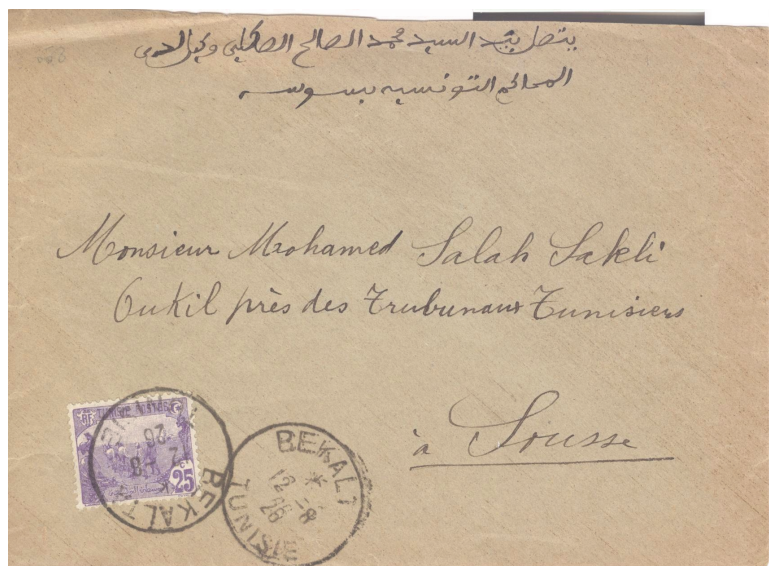 يتصل بيد السيد محمد الصالح الصاكلي وكيل لدى
المحاكم التونسيه بسوسه
Monsieur Mohamed Salah Sakli
Oukil près des Trubunaux Tunisiers
à Sousse
25
BEKALTA
26
BEKALTA
*
12-8
26
TUNISIE